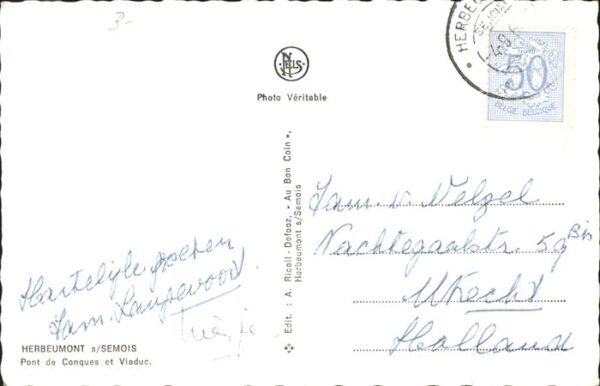 3-
NELS
Photo Véritable
HERBEU
SEMOIS
50
BELGIE-BELGIQUE
Hartelijke groeten
Fam. Langevoord.
HERBEUMONT s/SEMOIS
Pont de Conques et Viaduc.
Edit. : A. Ricail-Defooz, « Au Bon Coin »,
Herbeumont s/Semois
Fam. v. Velzel
Nachtegaalstr. 59 Bis
Utrecht
Holland